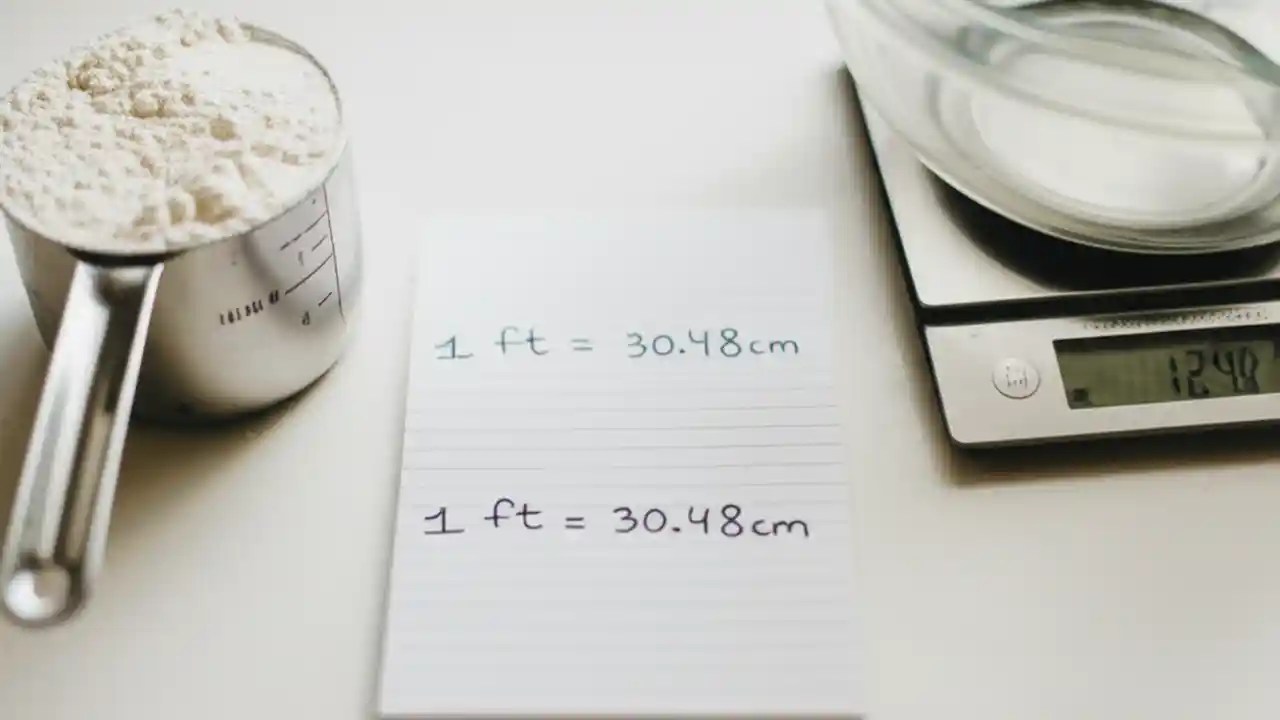 1 ft = 30.48cm
1 ft = 30.48cm
12.48